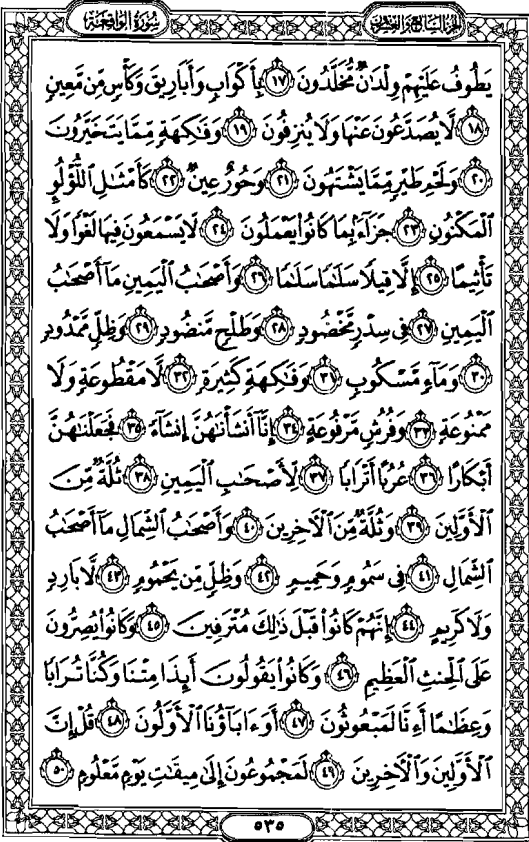 سورة الواقعة
الجزء السابع والعشرون
يَطُوفُ عَلَيْهِمْ وِلْدَٰنٌ مُّخَلَّدُونَ ١٧ بِأَكْوَابٍ وَأَبَارِيقَ وَكَأْسٍ مِّن مَّعِينٍ
١٨ لَّا يُصَدَّعُونَ عَنْهَا وَلَا يُنزِفُونَ ١٩ وَفَٰكِهَةٍ مِّمَّا يَتَخَيَّرُونَ
٢٠ وَلَحْمِ طَيْرٍ مِّمَّا يَشْتَهُونَ ٢١ وَحُورٌ عِينٌ ٢٢ كَأَمْثَٰلِ ٱللُّؤْلُوِٕ
ٱلْمَكْنُونِ ٢٣ جَزَآءًۢ بِمَا كَانُوا۟ يَعْمَلُونَ ٢٤ لَا يَسْمَعُونَ فِيهَا لَغْوًا وَلَا
تَأْثِيمًا ٢٥ إِلَّا قِيلًا سَلَٰمًا سَلَٰمًا ٢٦ وَأَصْحَٰبُ ٱلْيَمِينِ مَآ أَصْحَٰبُ
ٱلْيَمِينِ ٢٧ فِى سِدْرٍ مَّخْضُودٍ ٢٨ وَطَلْحٍ مَّنضُودٍ ٢٩ وَظِلٍّ مَّمْدُودٍ
٣٠ وَمَآءٍ مَّسْكُوبٍ ٣١ وَفَٰكِهَةٍ كَثِيرَةٍ ٣٢ لَّا مَقْطُوعَةٍ وَلَا
مَمْنُوعَةٍ ٣٣ وَفُرُشٍ مَّرْفُوعَةٍ ٣٤ إِنَّآ أَنشَأْنَٰهُنَّ إِنشَآءً ٣٥ فَجَعَلْنَٰهُنَّ
أَبْكَارًا ٣٦ عُرُبًا أَتْرَابًا ٣٧ لِّأَصْحَٰبِ ٱلْيَمِينِ ٣٨ ثُلَّةٌ مِّنَ
ٱلْأَوَّلِينَ ٣٩ وَثُلَّةٌ مِّنَ ٱلْءَاخِرِينَ ٤٠ وَأَصْحَٰبُ ٱلشِّمَالِ مَآ أَصْحَٰبُ
ٱلشِّمَالِ ٤١ فِى سَمُومٍ وَحَمِيمٍ ٤٢ وَظِلٍّ مِّن يَحْمُومٍ ٤٣ لَّا بَارِدٍ
وَلَا كَرِيمٍ ٤٤ إِنَّهُمْ كَانُوا۟ قَبْلَ ذَٰلِكَ مُتْرَفِينَ ٤٥ وَكَانُوا۟ يُصِرُّونَ
عَلَى ٱلْحِنثِ ٱلْعَظِيمِ ٤٦ وَكَانُوا۟ يَقُولُونَ أَئِذَا مِتْنَا وَكُنَّا تُرَابًا
وَعِظَٰمًا أَءِنَّا لَمَبْعُوثُونَ ٤٧ أَوَءَابَآؤُنَا ٱلْأَوَّلُونَ ٤٨ قُلْ إِنَّ
ٱلْأَوَّلِينَ وَٱلْءَاخِرِينَ ٤٩ لَمَجْمُوعُونَ إِلَىٰ مِيقَٰتِ يَوْمٍ مَّعْلُومٍ ٥٠
٥٣٥